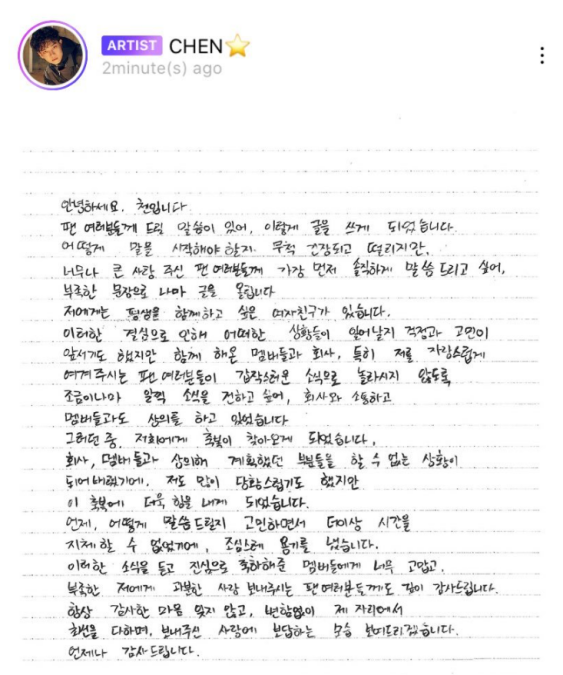 ARTIST CHEN⭐
2minute(s) ago
안녕하세요. 첸입니다
팬 여러분들께 드릴 말씀이 있어, 이렇게 글을 쓰게 되었습니다.
어떻게 말을 시작해야 할지 무척 긴장되고 떨리지만,
너무나 큰 사랑 주신 팬 여러분들께 가장 먼저 솔직하게 말씀드리고 싶어,
부족한 문장으로 나마 글을 올립니다
저에게는 평생을 함께하고 싶은 여자친구가 있습니다.
이러한 결심으로 인해 어떠한 상황들이 일어날지 걱정과 고민이
앞서기도 했지만 함께 해온 멤버들과 회사, 특히 저를 자랑스럽게
여겨주시는 팬 여러분들이 갑작스러운 소식으로 놀라시지 않도록
조금이나마 일찍 소식을 전하고 싶어, 회사와 소통하고
멤버들과도 상의를 하고 있었습니다
그러던 중, 저희에게 축복이 찾아오게 되었습니다.
회사, 멤버들과 상의해 계획했던 부분들을 할 수 없는 상황이
되어버렸기에. 저도 많이 당황스럽기도 했지만
이 축복에 더욱 힘을 내게 되었습니다.
언제, 어떻게 말씀드릴지 고민하면서 더이상 시간을
지체할 수 없었기에, 조심스레 용기를 냈습니다.
이러한 소식을 듣고 진심으로 축하해준 멤버들에게 너무 고맙고.
부족한 저에게 과분한 사랑 보내주시는 팬 여러분들께도 깊이 감사드립니다.
항상 감사한 마음 잊지 않고, 변함없이 제 자리에서
최선을 다하며, 보내주신 사랑에 보답하는 모습 보여드리겠습니다.
언제나 감사드립니다.